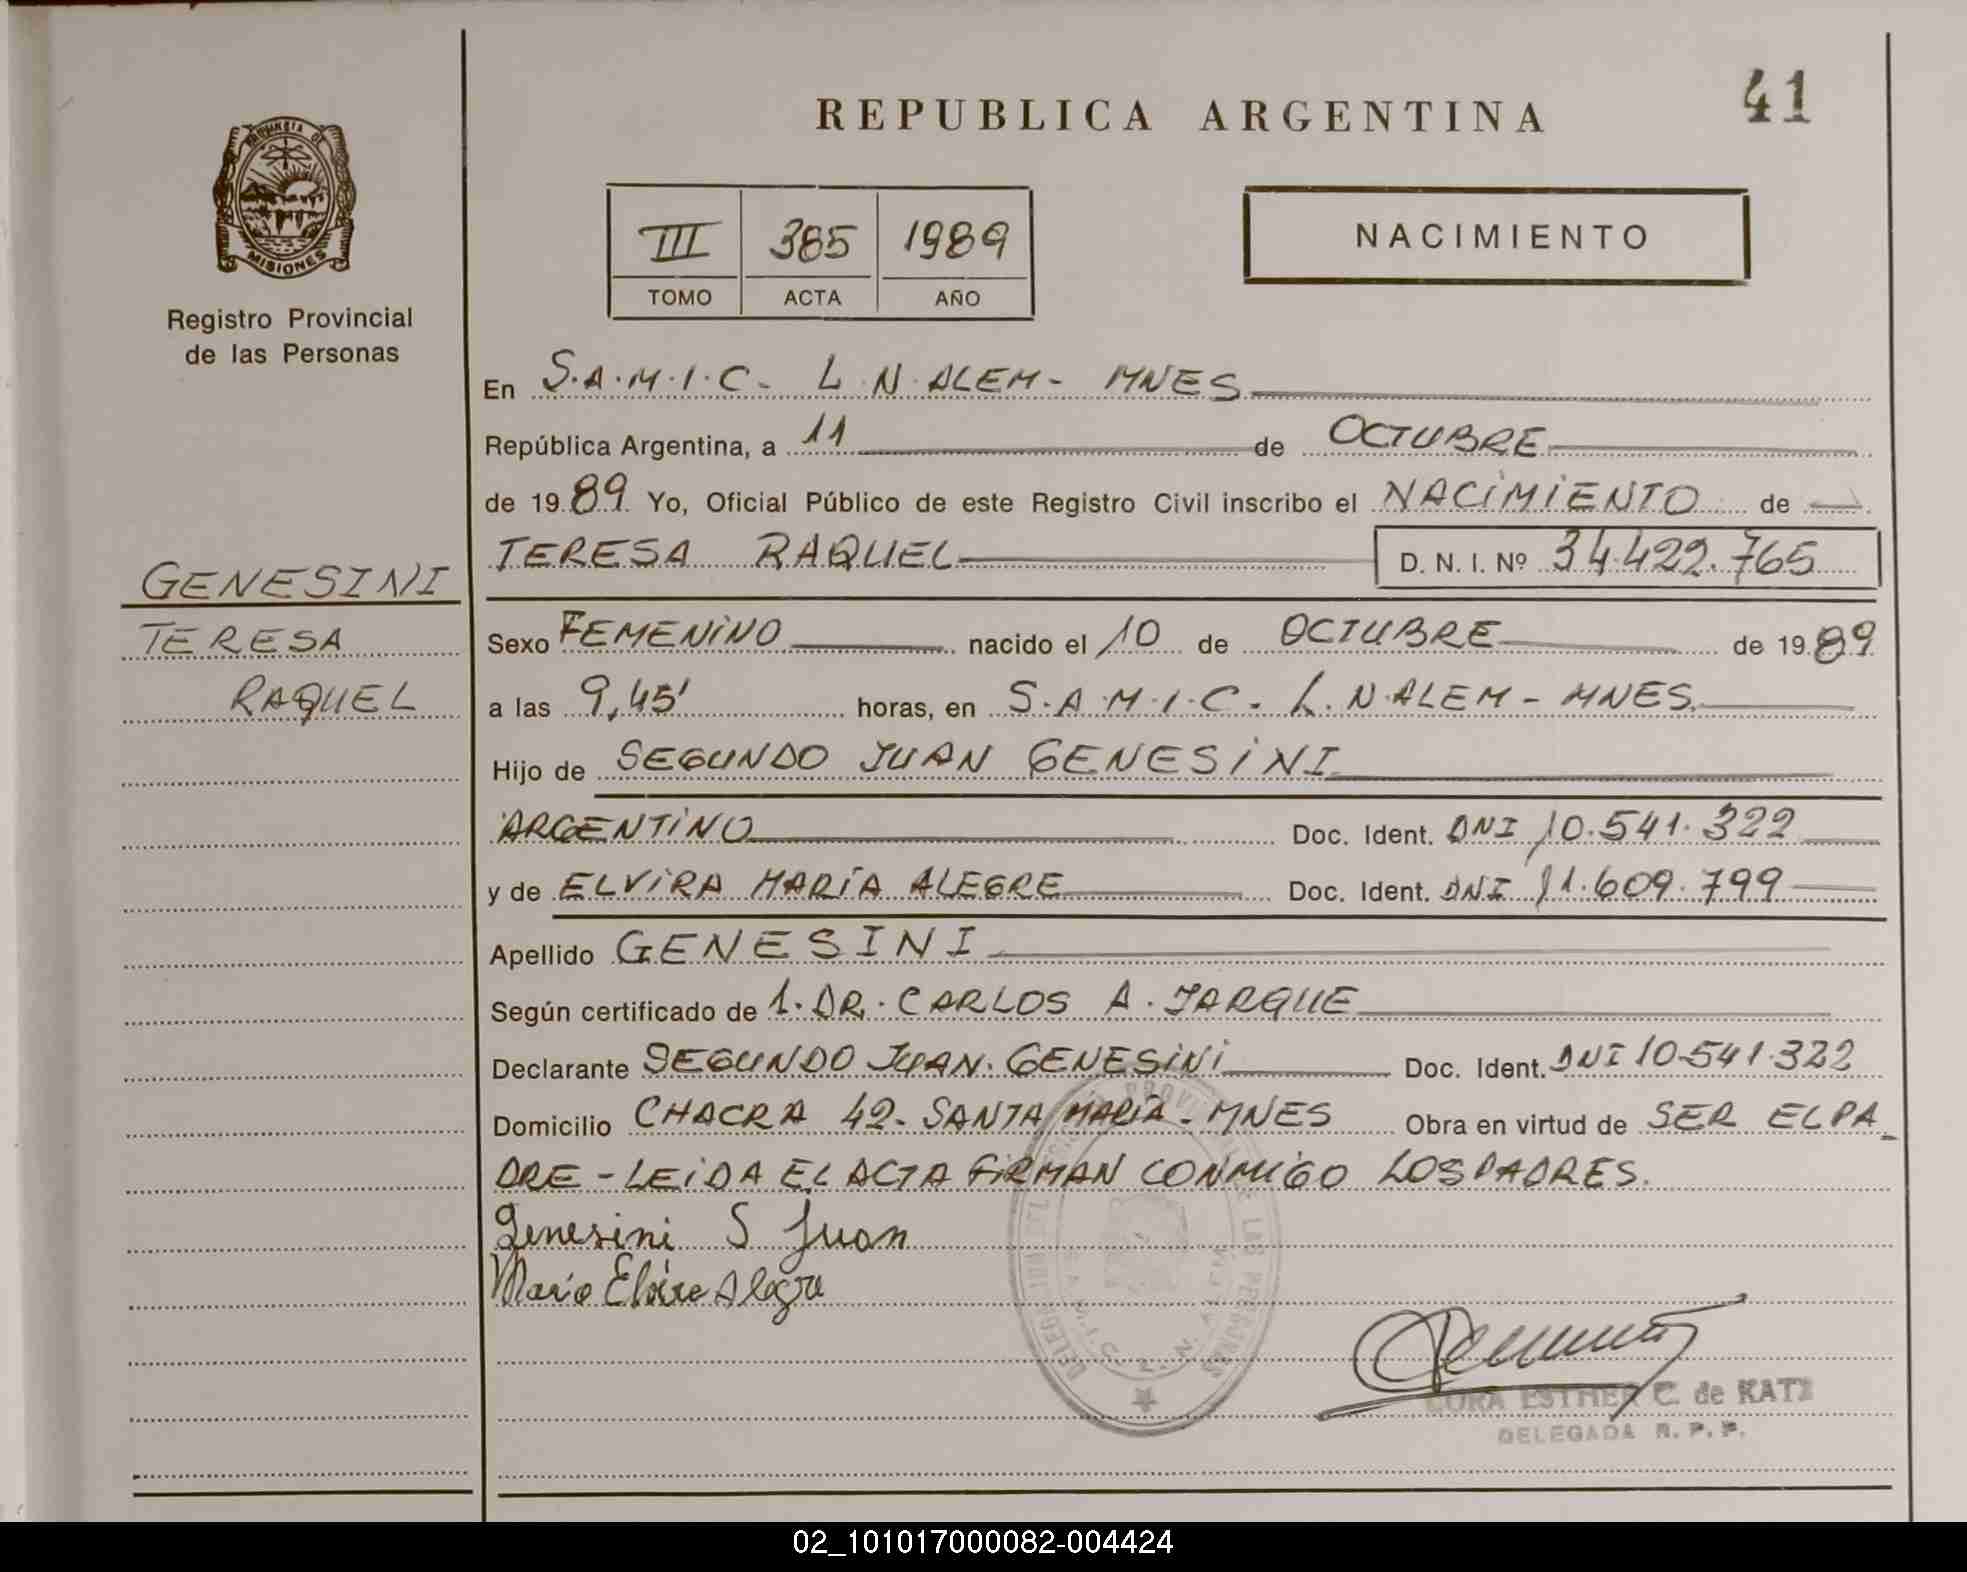 REPUBLICA ARGENTINA
41
PROVINCIA DE
MISIONES
Registro Provincial
de las Personas
III 385 1989
TOMO ACTA AÑO
NACIMIENTO
En S.A.M.I.C- L.N.ALEM- MNES
República Argentina, a 11 de OCTUBRE
de 1989 Yo, Oficial Público de este Registro Civil inscribo el NACIMIENTO de
TERESA RAQUEL D. N. I. Nº 34.422.765
GENESINI
TERESA
RAQUEL
Sexo FEMENINO nacido el 10 de OCTUBRE de 1989
a las 9,45' horas, en S.A.M.I.C- L.N.ALEM- MNES.
Hijo de SEGUNDO JUAN GENESINI
ARGENTINO Doc. Ident. DNI 10.541.322
y de ELVIRA MARÍA ALEGRE Doc. Ident. DNI 11.609.799
Apellido GENESINI
Según certificado de 1. DR. CARLOS A. JARQUE
Declarante SEGUNDO JUAN. GENESINI Doc. Ident. DNI 10-541.322
Domicilio CHACRA 42- SANTA MARÍA- MNES Obra en virtud de SER EL PA-
DRE - LEIDA EL ACTA FIRMAN CONMIGO LOS PADRES.
Genesini S Juan
María Elvira Alegre
ESTHER C. de KATZ
DELEGADA R. P. P.
02_101017000082-004424